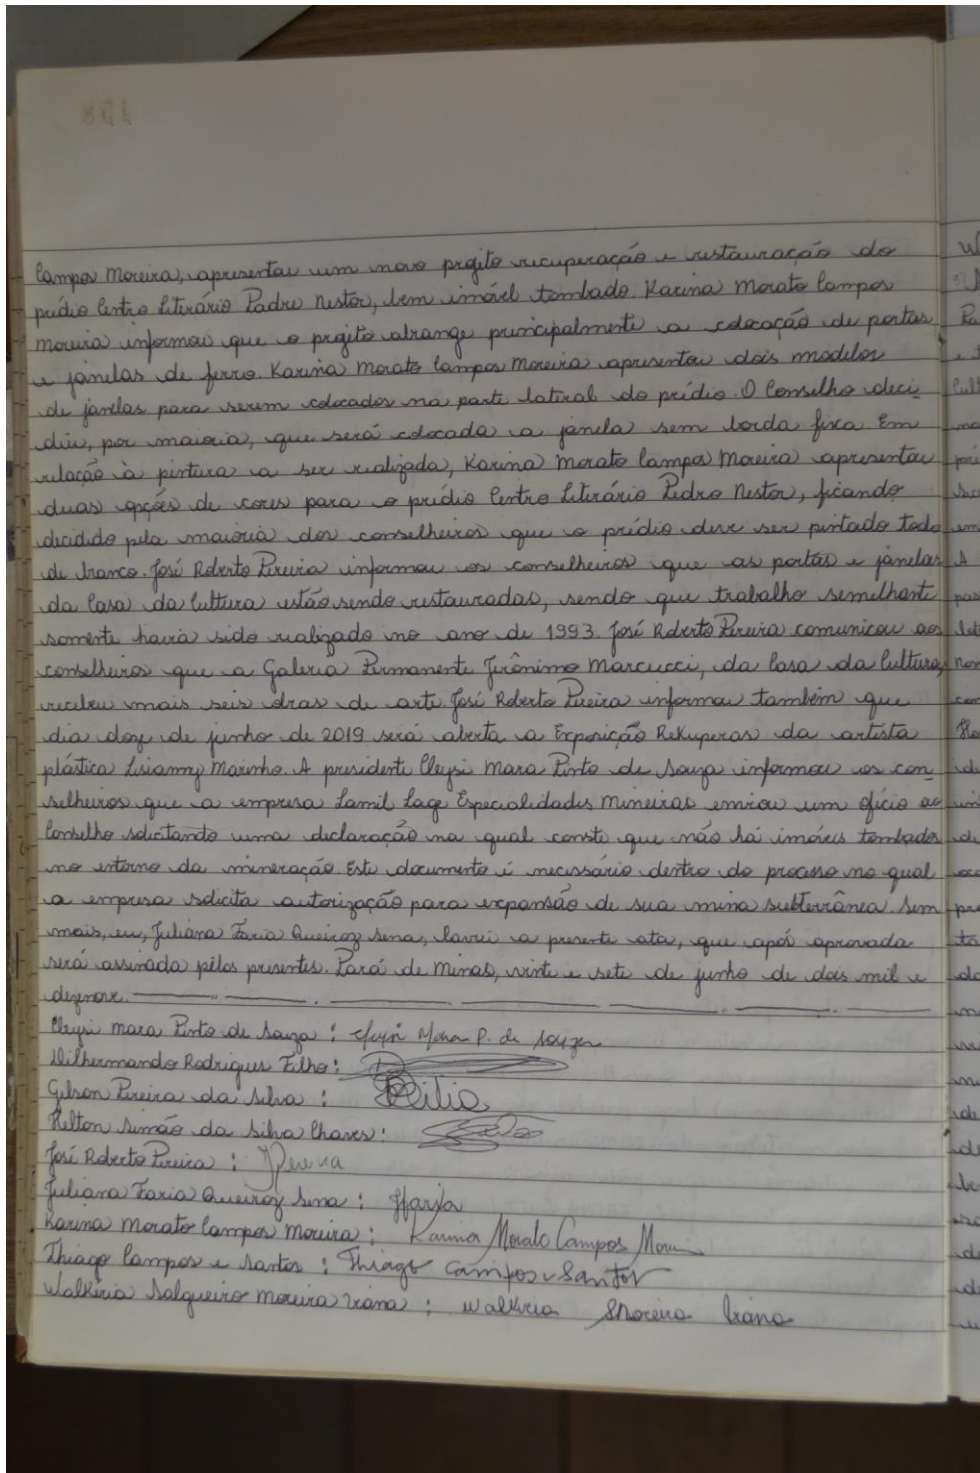 Campos Moreira, apresentou um novo projeto recuperação e restauração do
prédio Centro Literário Padre Nestor, bem imóvel tombado. Karina Morato Campos
Moreira informou que o projeto abrange principalmente a colocação de portas
e janelas de ferro. Karina Morato Campos Moreira apresentou dois modelos
de janelas para serem colocados na parte lateral do prédio. O Conselho deci-
diu, por maioria, que será colocada a janela sem borda fixa. Em
relação à pintura a ser realizada, Karina Morato Campos Moreira apresentou
duas opções de cores para o prédio Centro Literário Pedro Nestor, ficando
decidido pela maioria dos conselheiros que o prédio deve ser pintado todo
de branco. José Roberto Pereira informou os conselheiros que as portas e janelas
da Casa da Cultura estão sendo restauradas, sendo que trabalho semelhante
somente havia sido realizado no ano de 1993. José Roberto Pereira comunicou aos
conselheiros que a Galeria Permanente Jerônimo Marcucci, da Casa da Cultura,
recebeu mais seis obras de arte. José Roberto Pereira informou também que
dia doze de junho de 2019 será aberta a Exposição Rekuperas da artista
plástica Lisianny Marinho. A presidente Cleysi Mara Pinto de Souza informou os con-
selheiros que a empresa Lamil Lage Especialidades Mineiras enviou um ofício ao
Conselho solicitando uma declaração na qual conste que não há imóveis tombados
no entorno da mineração. Este documento é necessário dentro do processo no qual
a empresa solicita autorização para expansão de sua mina subterrânea. Sem
mais, eu, Juliana Faria Queiroz Sena, lavrei a presente ata, que após aprovada
será assinada pelos presentes. Pará de Minas, vinte e sete de junho de dois mil e
dezenove.
Cleysi Mara Pinto de Souza : Cleysi Mara P. de Souza
Dilhermando Rodrigues Filho :
Gilson Pereira da Silva :
Helton Simão da Silva Chaves :
José Roberto Pereira : JPereira
Juliana Faria Queiroz Sena : JFaria
Karina Morato Campos Moreira : Karina Morato Campos Morei
Thiago Campos e Santos : Thiago Campos e Santos
Walkíria Salgueiro Moreira Viana : Walkiria SMoreira Viana